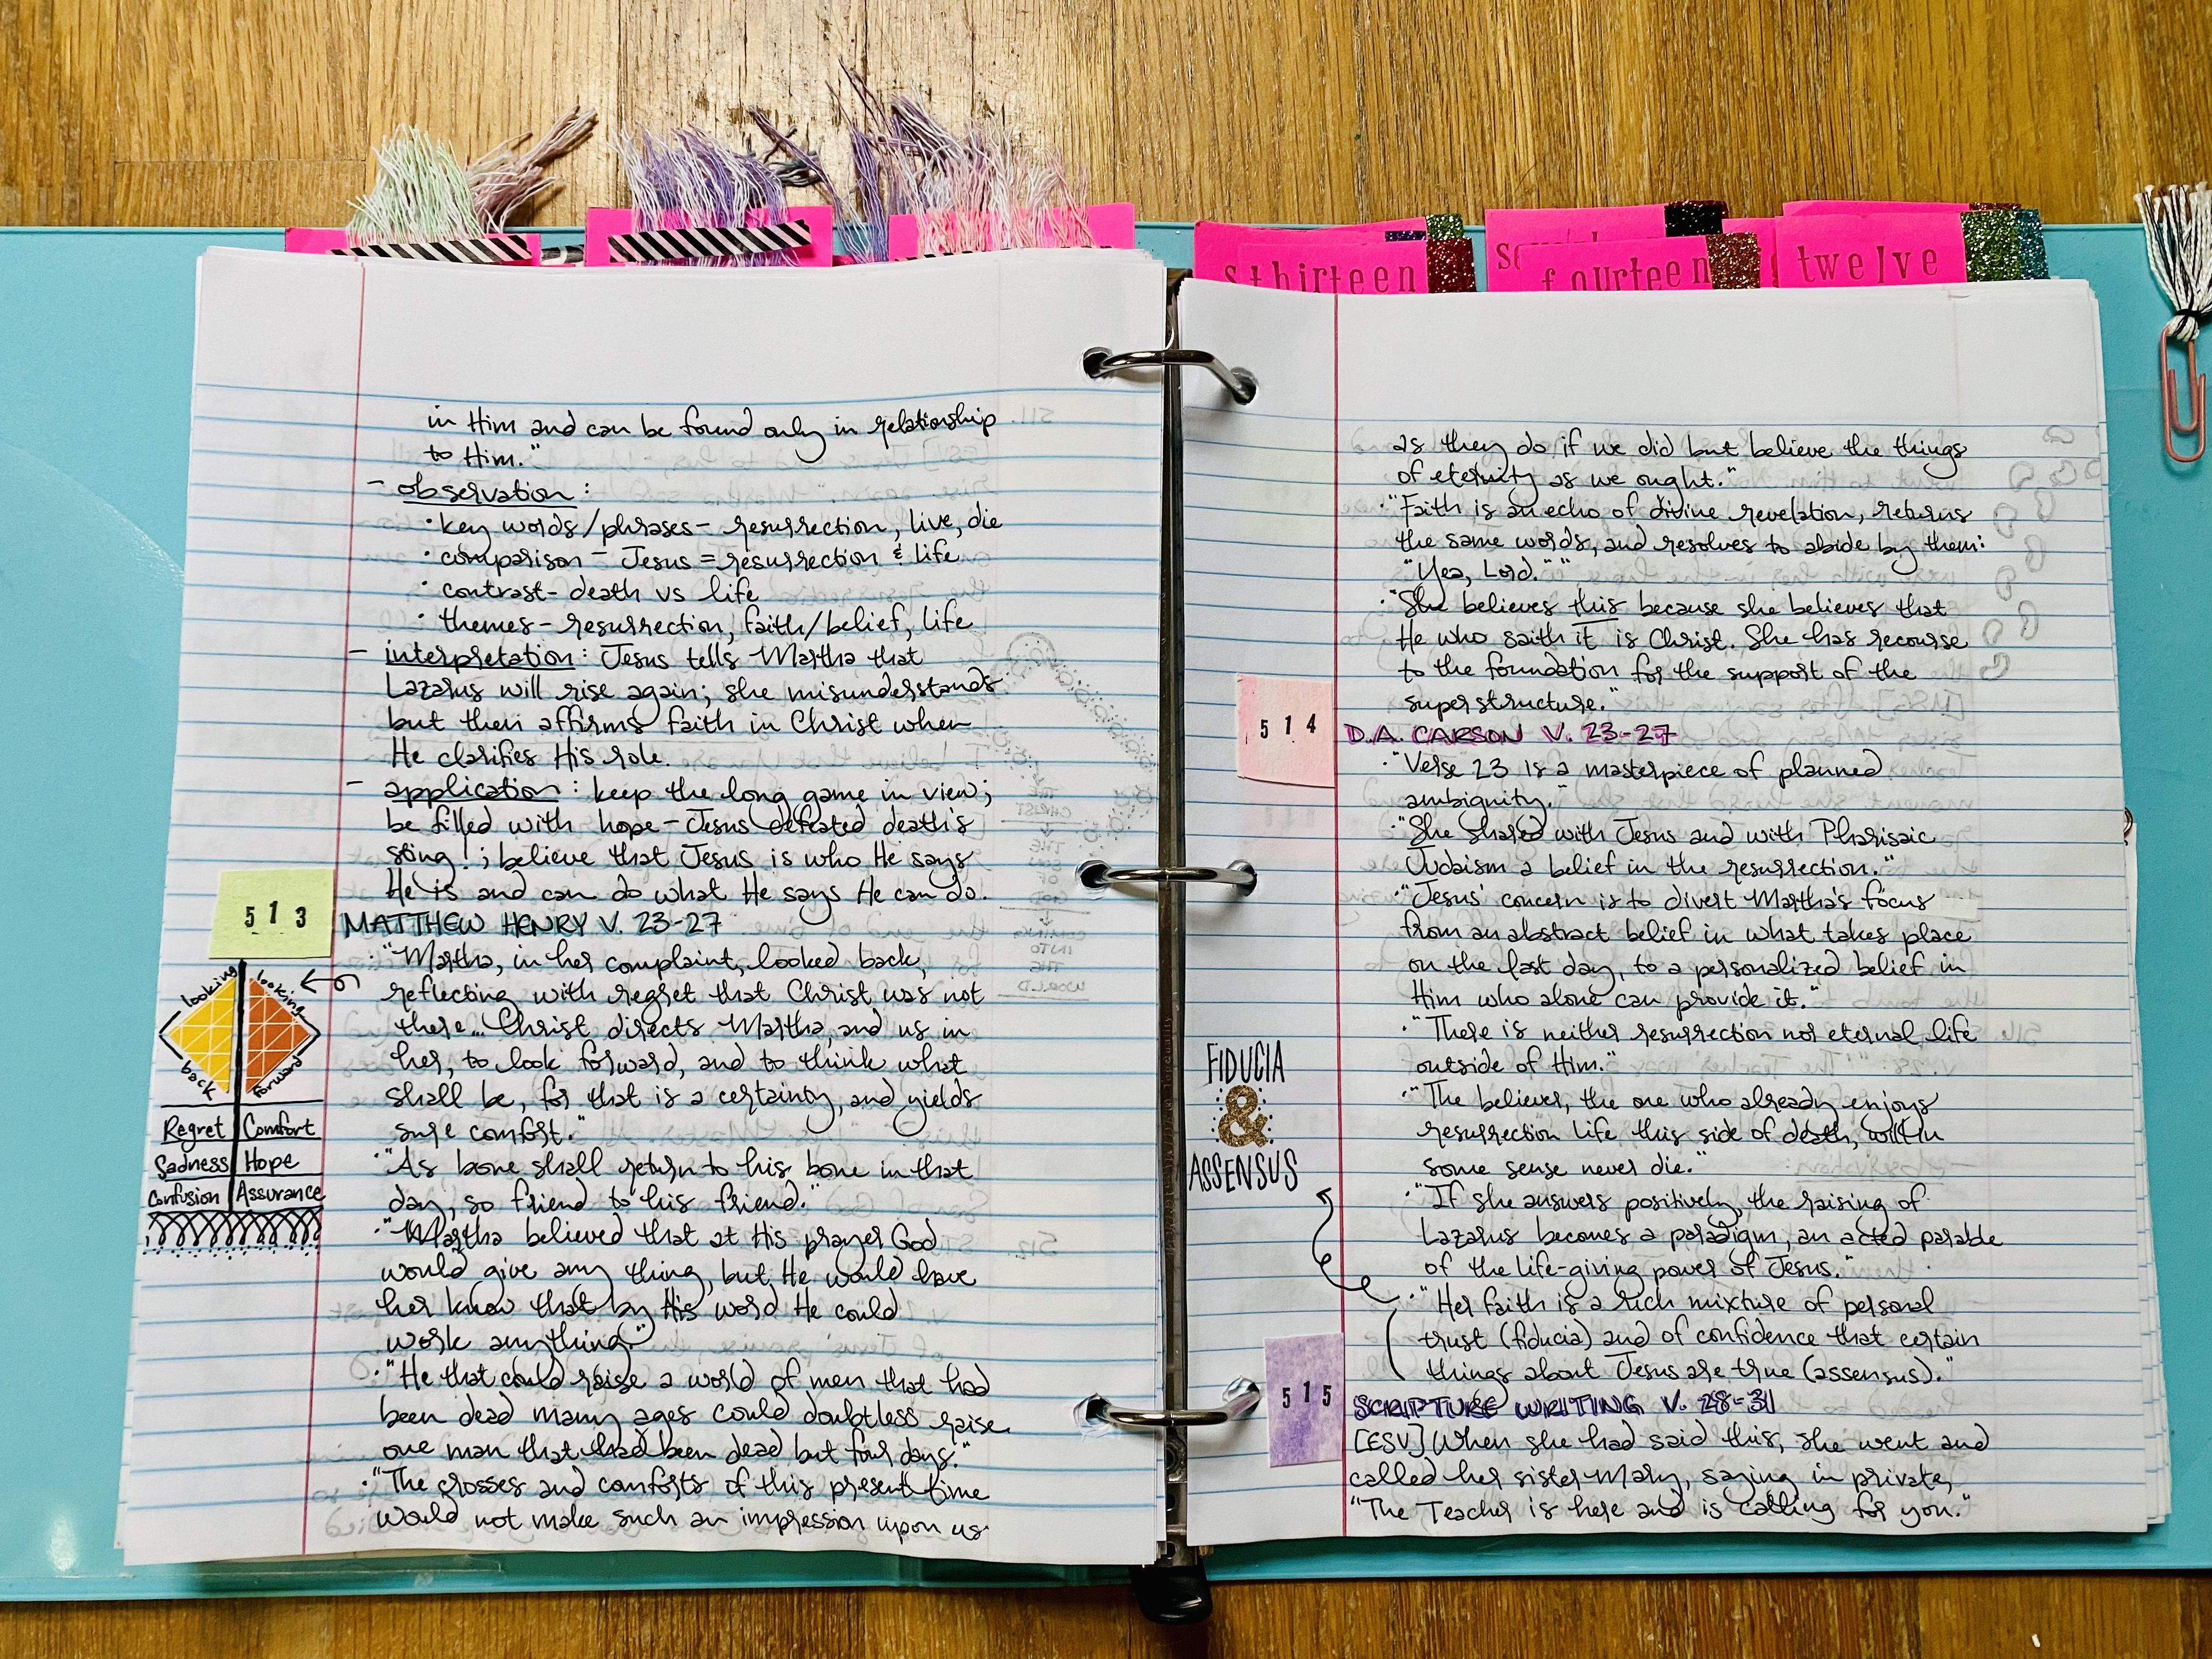 sthirteen
fourteen
twelve
in Him and can be found only in relationship
to Him."
- observation:
· key words/phrases - resurrection, live, die
· comparison - Jesus = resurrection & life
· contrast - death vs life
· themes - resurrection, faith/belief, life
- interpretation: Jesus tells Martha that
Lazarus will rise again; she misunderstands
but then affirms faith in Christ when
He clarifies His role.
- application: keep the long game in view;
be filled with hope - Jesus defeated death's
sting!; believe that Jesus is who He says
He is and can do what He says He can do.
513
MATTHEW HENRY V. 23-27
· "Martha, in her complaint, looked back,
reflecting with regret that Christ was not
there... Christ directs Martha, and us in
her, to look forward, and to think what
shall be, for that is a certainty, and yields
sure comfort."
· "As bone shall return to his bone in that
day, so friend to his friend."
· "Martha believed that at His prayer God
would give any thing, but He would have
her know that by His word He could
work anything."
· "He that could raise a world of men that had
been dead many ages could doubtless raise
one man that had been dead but four days."
· "The crosses and comforts of this present time
would not make such an impression upon us
looking back
looking forward
Regret Comfort
Sadness Hope
Confusion Assurance
as they do if we did but believe the things
of eternity as we ought."
· "Faith is an echo of divine revelation, returns
the same words, and resolves to abide by them:
"Yea, Lord.""
· "She believes this because she believes that
He who saith it is Christ. She has recourse
to the foundation for the support of the
superstructure."
514
D.A. CARSON V. 23-27
· "Verse 23 is a masterpiece of planned
ambiguity."
· "She shared with Jesus and with Pharisaic
Judaism a belief in the resurrection."
· "Jesus' concern is to divert Martha's focus
from an abstract belief in what takes place
on the last day, to a personalized belief in
Him who alone can provide it."
· "There is neither resurrection nor eternal life
outside of Him."
· "The believer, the one who already enjoys
resurrection life this side of death, will in
some sense never die."
· "If she answers positively, the raising of
Lazarus becomes a paradigm, an acted parable
of the life-giving power of Jesus."
· "Her faith is a rich mixture of personal
trust (fiducia) and of confidence that certain
things about Jesus are true (assensus)."
FIDUCIA
&
ASSENSUS
515
SCRIPTURE WRITING V. 28-31
[ESV] When she had said this, she went and
called her sister Mary, saying in private,
"The Teacher is here and is calling for you."